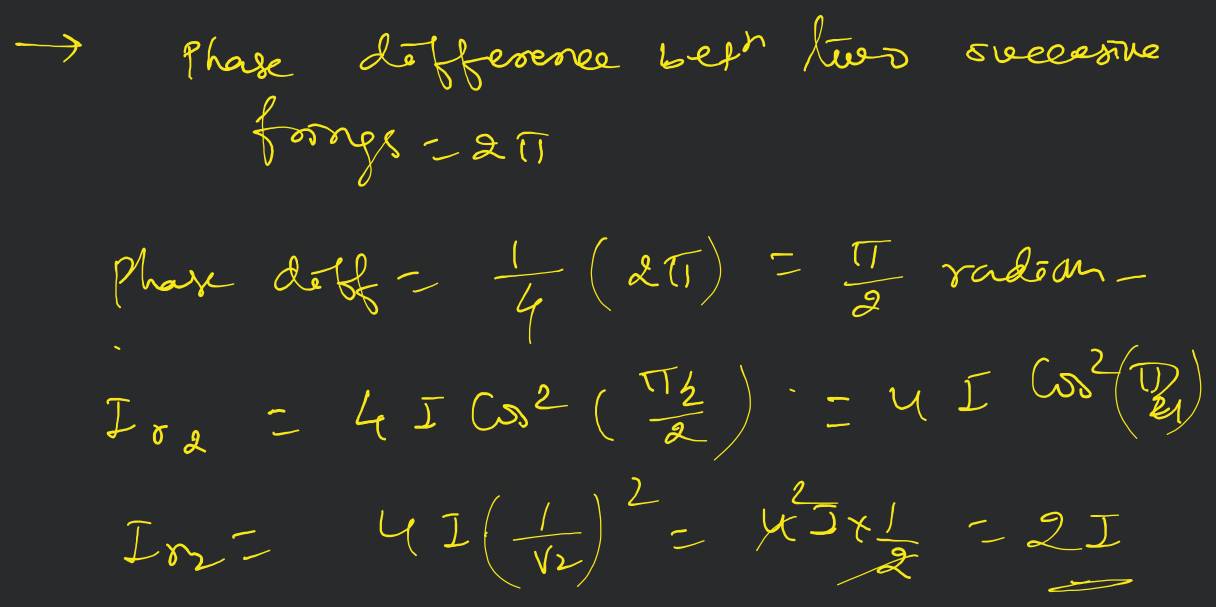 → Phase difference betⁿ two successive
frings = 2π
Phase diff = 1/4 (2π) = π/2 radian -
I r2 = 4 I Cos² (π/2/2) = 4 I Cos² (π/4)
I r2 = 4 I (1/√2)² = 4 I × 1/2 = 2 I